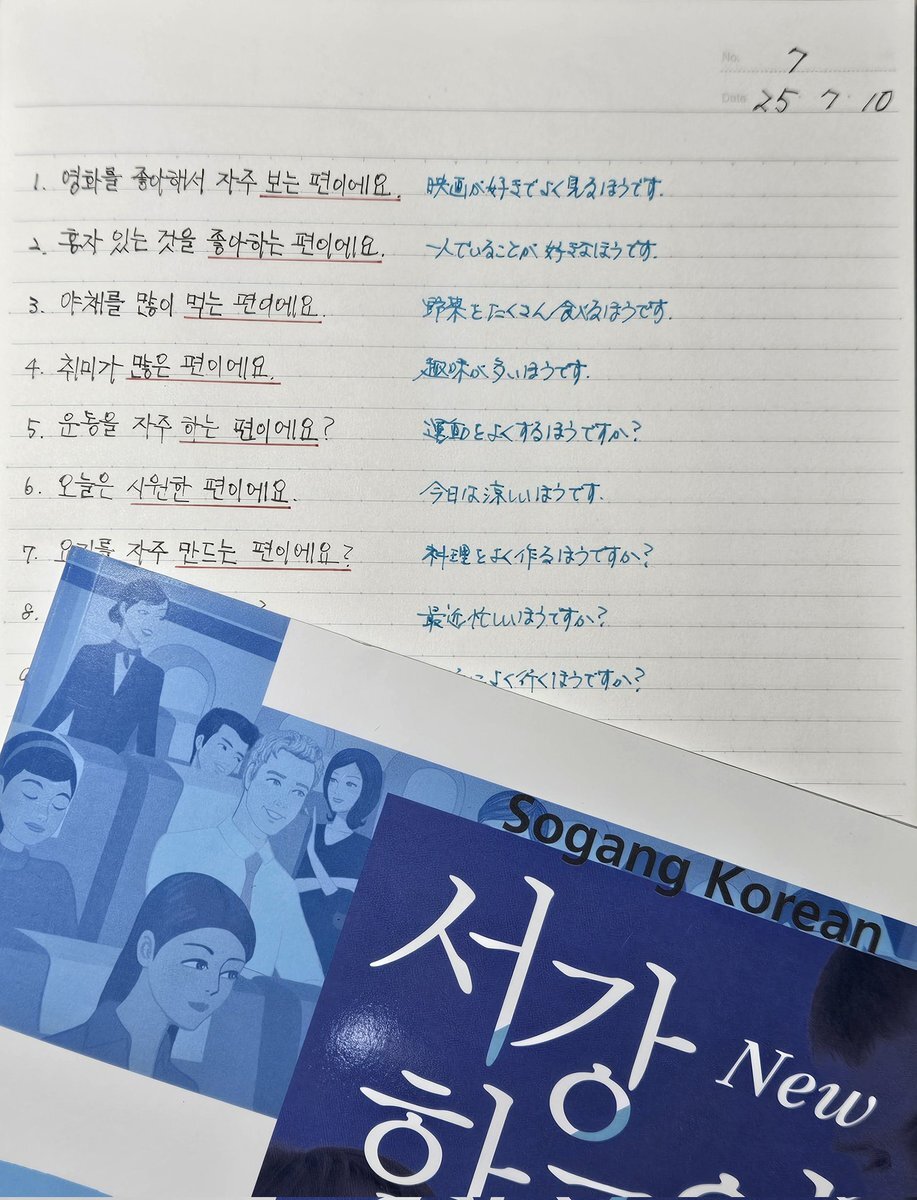 No. 7
Date 25 7 10
1. 영화를 좋아해서 자주 보는 편이에요. 映画が好きでよく見るほうです.
2. 혼자 있는 것을 좋아하는 편이에요. 一人でいることが好きなほうです.
3. 야채를 많이 먹는 편이에요. 野菜をたくさん食べるほうです.
4. 취미가 많은 편이에요. 趣味が多いほうです.
5. 운동을 자주 하는 편이에요? 運動をよくするほうですか?
6. 오늘은 시원한 편이에요. 今日は涼しいほうです.
7. 자주 만드는 편이에요? 料理をよく作るほうですか?
8. 最近忙しいほうですか?
よく行くほうですか?
Sogang Korean
서강
New